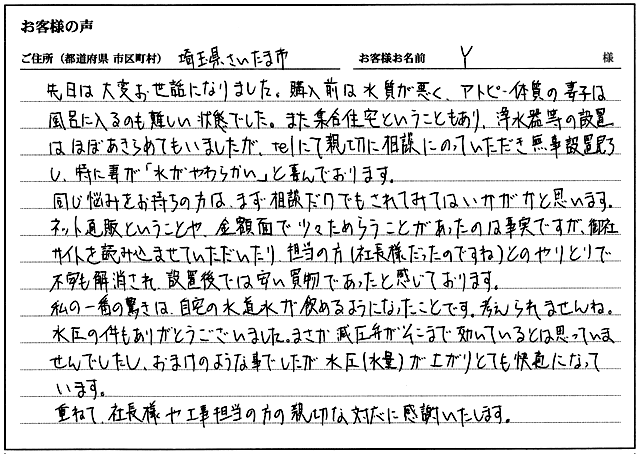 お客様の声
ご住所（都道府県 市区町村） 埼玉県さいたま市 お客様お名前 Y 様
先日は大変お世話になりました。購入前は水質が悪く、アトピー体質の妻子は
風呂に入るのも難しい状態でした。また集合住宅ということもあり、浄水器等の設置
はほぼあきらめてもいましたが、telにて親切に相談にのっていただき無事設置完了
し、特に妻が「水がやわらかい」と喜んでおります。
同じ悩みをお持ちの方は、まず相談だけでもされてみてはいかがかと思います。
ネット通販ということや、金額面で少々ためらうことがあったのは事実ですが、御社
サイトを読み込ませていただいたり、担当の方(社長様だったのですね)とのやりとりで
不安も解消され、設置後では安い買物であったと感じております。
私の一番の驚きは、自宅の水道水が飲めるようになったことです。考えられませんね。
水圧の件もありがとうございました。まさか減圧弁がそこまで効いているとは思っていま
せんでしたし、おまけのような事でしたが水圧(水量)が上がりとても快適になって
います。
重ねて、社長様や工事担当の方の親切な対応に感謝いたします。